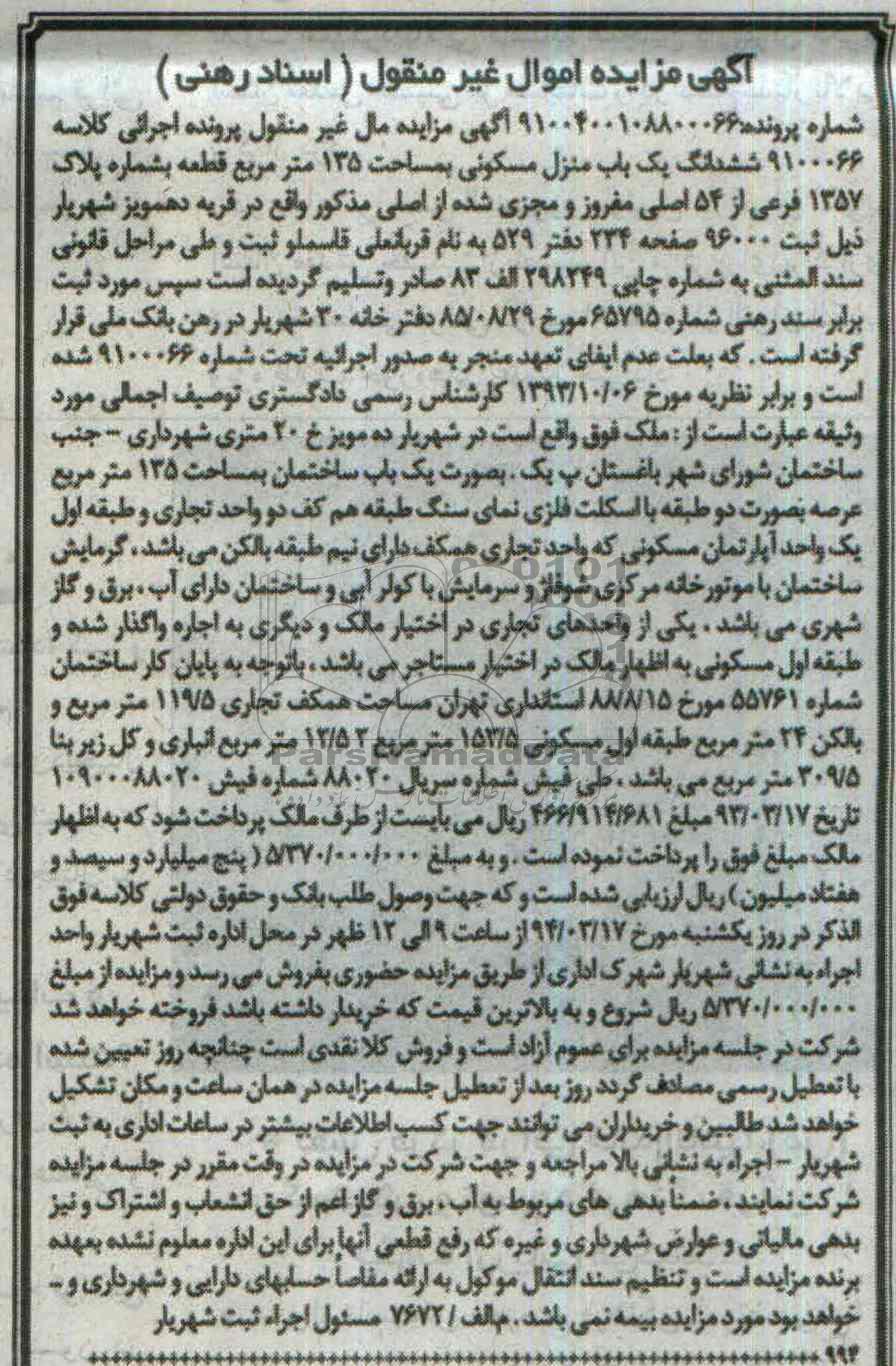 آگهی مزایده اموال غیر منقول ( اسناد رهنی )
شماره پرونده:۹۱۰۰۴۰۰۱۰۸۸۰۰۰۶۶ آگهی مزایده مال غیر منقول پرونده اجرائی کلاسه
۹۱۰۰۰۶۶ ششدانگ یک باب منزل مسکونی بمساحت ۱۳۵ متر مربع قطعه بشماره پلاک
۱۳۵۷ فرعی از ۵۴ اصلی مفروز و مجزی شده از اصلی مذکور واقع در قریه دهمویز شهریار
ذیل ثبت ۹۶۰۰۰ صفحه ۲۳۴ دفتر ۵۲۹ به نام قربانعلی قاسملو ثبت و طی مراحل قانونی
سند المثنی به شماره چاپی ۲۹۸۲۴۹ الف ۸۳ صادر وتسلیم گردیده است سپس مورد ثبت
برابر سند رهنی شماره ۶۵۷۹۵ مورخ ۸۵/۰۸/۲۹ دفتر خانه ۳۰ شهریار در رهن بانک ملی قرار
گرفته است . که بعلت عدم ایفای تعهد منجر به صدور اجرائیه تحت شماره ۹۱۰۰۰۶۶ شده
است و برابر نظریه مورخ ۱۳۹۳/۱۰/۰۶ کارشناس رسمی دادگستری توصیف اجمالی مورد
وثیقه عبارت است از : ملک فوق واقع است در شهریار ده مویز خ ۲۰ متری شهرداری – جنب
ساختمان شورای شهر باغستان پ یک . بصورت یک باب ساختمان بمساحت ۱۳۵ متر مربع
عرصه بصورت دو طبقه با اسکلت فلزی نمای سنگ طبقه هم کف دو واحد تجاری و طبقه اول
یک واحد آپارتمان مسکونی که واحد تجاری همکف دارای نیم طبقه بالکن می باشد ، گرمایش
ساختمان با موتورخانه مرکزی شوفاژ و سرمایش با کولر آبی و ساختمان دارای آب ، برق و گاز
شهری می باشد . یکی از واحدهای تجاری در اختیار مالک و دیگری به اجاره واگذار شده و
طبقه اول مسکونی به اظهار مالک در اختیار مستاجر می باشد ، باتوجه به پایان کار ساختمان
شماره ۵۵۷۶۱ مورخ ۸۸/۸/۱۵ استانداری تهران مساحت همکف تجاری ۱۱۹/۵ متر مربع و
بالکن ۲۴ متر مربع طبقه اول مسکونی ۱۵۳/۵ متر مربع ۲ ۱۲/۵ متر مربع انباری و کل زیر بنا
۳۰۹/۵ متر مربع می باشد . طی فیش شماره سریال ۸۸۰۲۰ شماره فیش ۱۰۹۰۰۰۸۸۰۲۰
تاریخ ۹۳/۰۳/۱۷ مبلغ ۴۶۶/۹۱۴/۶۸۱ ریال می بایست از طرف مالک پرداخت شود که به اظهار
مالک مبلغ فوق را پرداخت نموده است . و به مبلغ ۵/۳۷۰/۰۰۰/۰۰۰ ( پنج میلیارد و سیصد و
هفتاد میلیون ) ریال ارزیابی شده است و که جهت وصول طلب بانک و حقوق دولتی کلاسه فوق
الذکر در روز یکشنبه مورخ ۹۴/۰۳/۱۷ از ساعت ۹ الی ۱۲ ظهر در محل اداره ثبت شهریار واحد
اجراء به نشانی شهریار شهرک اداری از طریق مزایده حضوری بفروش می رسد و مزایده از مبلغ
۵/۳۷۰/۰۰۰/۰۰۰ ریال شروع و به بالاترین قیمت که خریدار داشته باشد فروخته خواهد شد
شرکت در جلسه مزایده برای عموم آزاد است و فروش کلا نقدی است چنانچه روز تعیین شده
با تعطیل رسمی مصادف گردد روز بعد از تعطیل جلسه مزایده در همان ساعت و مکان تشکیل
خواهد شد طالبین و خریداران می توانند جهت کسب اطلاعات بیشتر در ساعات اداری به ثبت
شهریار – اجراء به نشانی بالا مراجعه و جهت شرکت در مزایده در وقت مقرر در جلسه مزایده
شرکت نمایند ، ضمناً بدهی های مربوط به آب ، برق و گاز اعم از حق انشعاب و اشتراک و نیز
بدهی مالیاتی و عوارض شهرداری و غیره که رفع قطعی آنها برای این اداره معلوم نشده بعهده
برنده مزایده است و تنظیم سند انتقال موکول به ارائه مفاصاً حسابهای دارایی و شهرداری و ...
خواهد بود مورد مزایده بیمه نمی باشد . م/الف / ۷۶۷۲ مسئول اجراء ثبت شهریار
۹۹۴
ParsNamadData